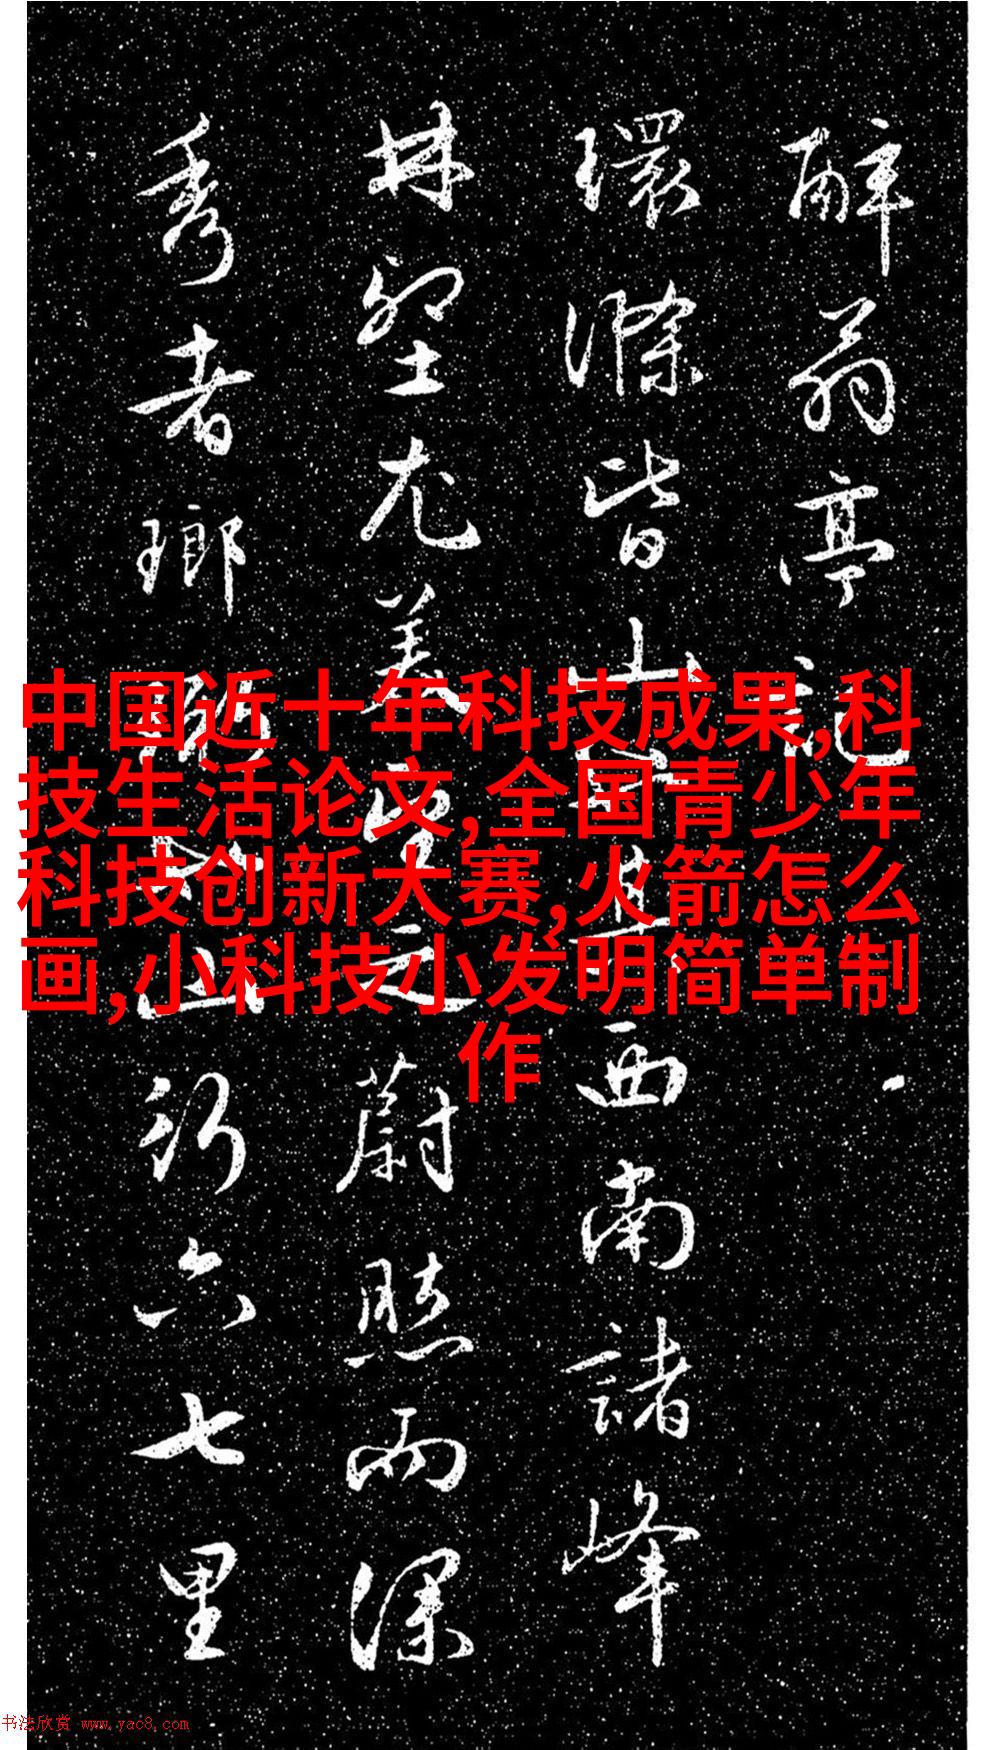 醉翁亭記
環滁皆山也其西南諸峰
林壑尤美望之蔚然而深
秀者瑯琊也山行六七里
中国近十年科技成果,科
技生活论文,全国青少年
科技创新大赛,火箭怎么
画,小科技小发明简单制
作
书法欣赏 www.yac8.com